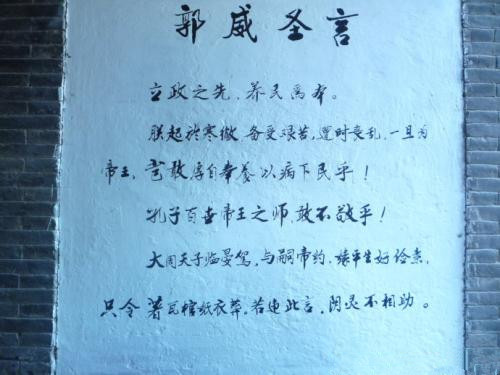 郭威圣言
立政之先,养民为本。
朕起於寒微,备受艰苦,遭时丧乱,一旦为
帝王,岂敢厚自奉养以病下民乎!
孔子百世帝王之师,敢不敬乎!
大周天子临晏驾,与嗣帝约,缘平生好俭素,
只令著瓦棺纸衣葬,若违此言,阴灵不相助。